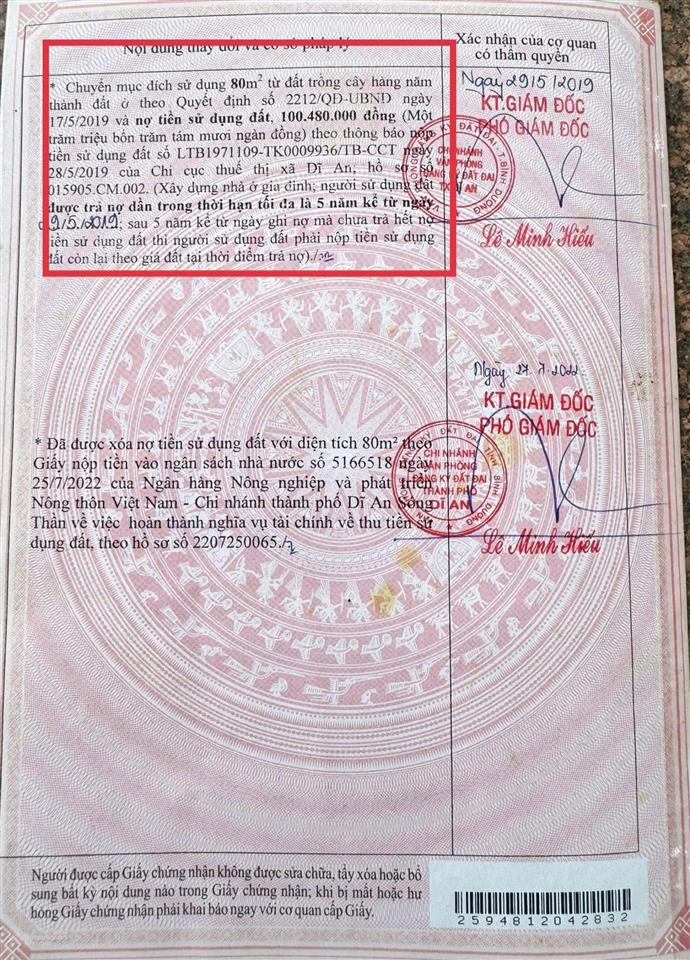 Nội dung thay đổi và cơ sở pháp lý
Xác nhận của cơ quan
có thẩm quyền
* Chuyển mục đích sử dụng 80m² từ đất trồng cây hàng năm
thành đất ở theo Quyết định số 2212/QĐ-UBND ngày
17/5/2019 và nợ tiền sử dụng đất, 100.480.000 đồng (Một
trăm triệu bốn trăm tám mươi ngàn đồng) theo thông báo nộp
tiền sử dụng đất số LTB1971109-TK0009936/TB-CCT ngày
28/5/2019 của Chi cục thuế thị xã Dĩ An, hồ sơ số
015905.CM.002. (Xây dựng nhà ở gia đình; người sử dụng đất
được trả nợ dần trong thời hạn tối đa là 5 năm kể từ ngày
29/5/2019; sau 5 năm kể từ ngày ghi nợ mà chưa trả hết nợ
tiền sử dụng đất thì người sử dụng đất phải nộp tiền sử dụng
đất còn lại theo giá đất tại thời điểm trả nợ)./
Ngày 29/5/2019
KT.GIÁM ĐỐC
PHÓ GIÁM ĐỐC
CHI NHÁNH
VĂN PHÒNG
ĐĂNG KÝ ĐẤT ĐAI
TX. DĨ AN
Lê Minh Hiếu
* Đã được xóa nợ tiền sử dụng đất với diện tích 80m² theo
Giấy nộp tiền vào ngân sách nhà nước số 5166518 ngày
25/7/2022 của Ngân hàng Nông nghiệp và phát triển
Nông thôn Việt Nam - Chi nhánh thành phố Dĩ An Sóng
Thần về việc hoàn thành nghĩa vụ tài chính về thu tiền sử
dụng đất, theo hồ sơ số 2207250065./
Ngày 27.7.2022
KT.GIÁM ĐỐC
PHÓ GIÁM ĐỐC
CHI NHÁNH
VĂN PHÒNG
ĐĂNG KÝ ĐẤT ĐAI
THÀNH PHỐ
DĨ AN
Lê Minh Hiếu
Người được cấp Giấy chứng nhận không được sửa chữa, tẩy xóa hoặc bổ
sung bất kỳ nội dung nào trong Giấy chứng nhận; khi bị mất hoặc hư
hỏng Giấy chứng nhận phải khai báo ngay với cơ quan cấp Giấy.
2594812042832